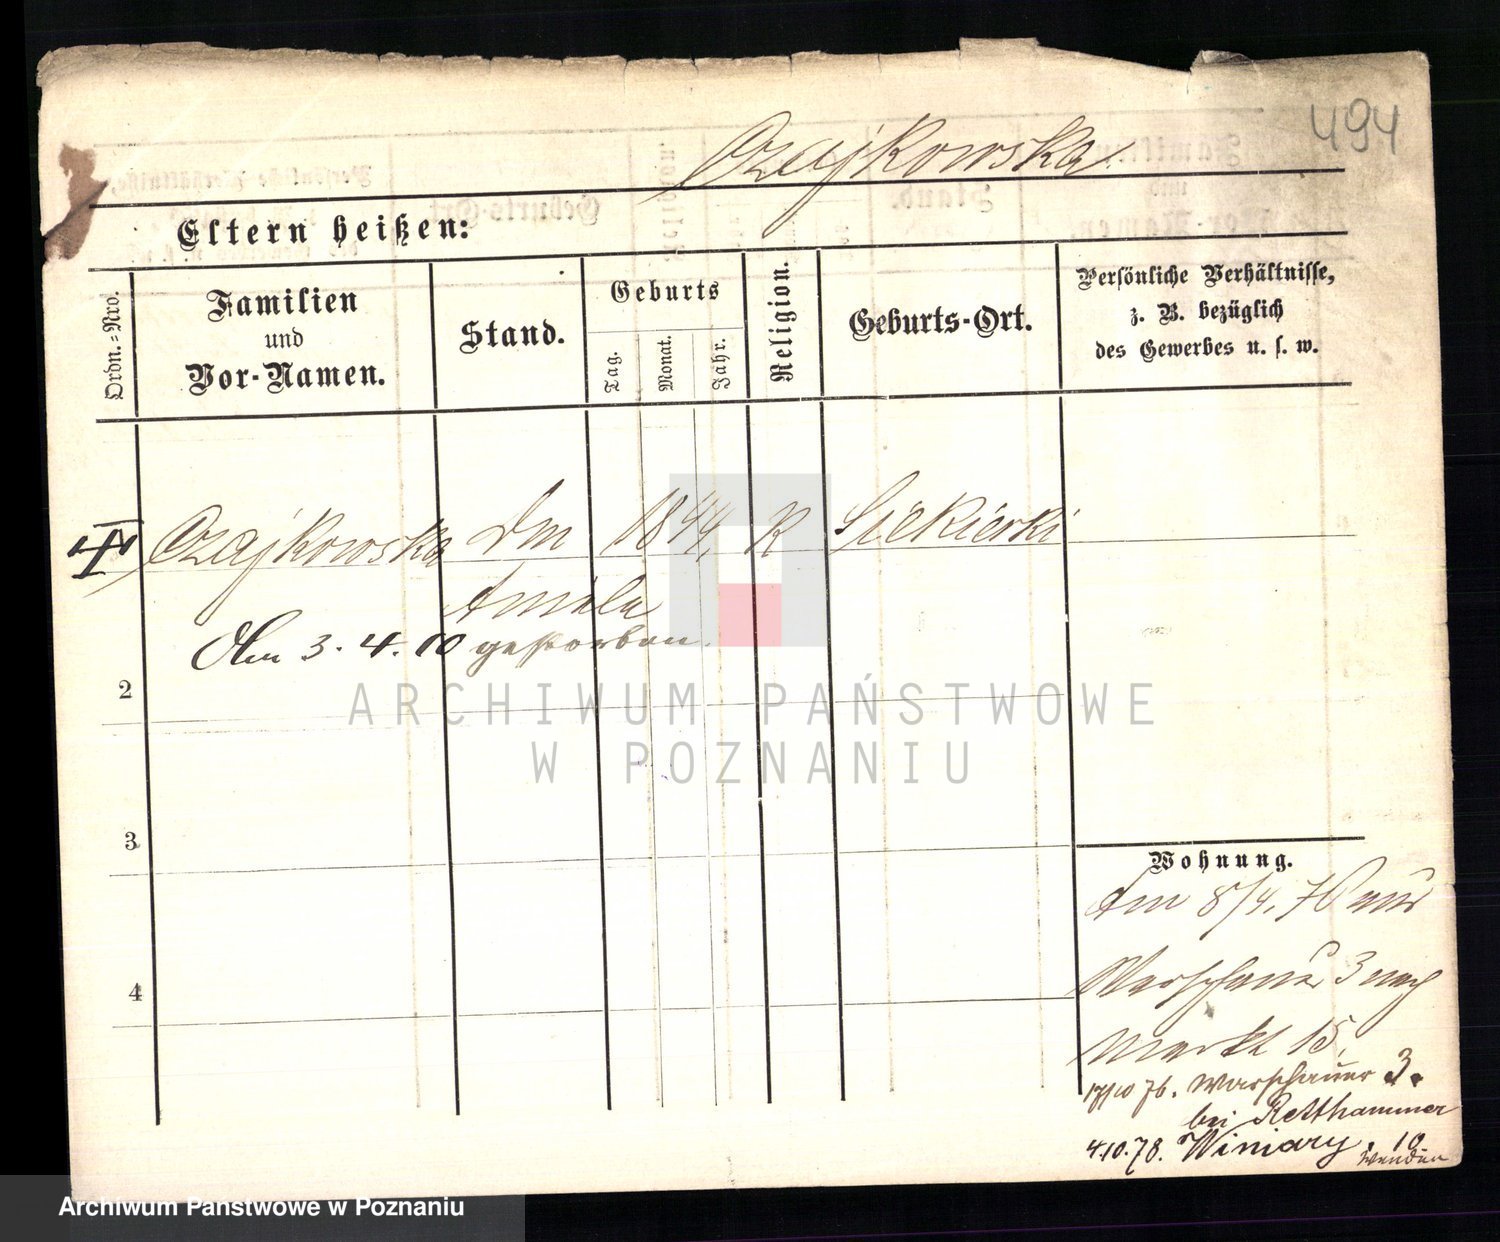 494
Czajkowska
Eltern heißen:
Ordn.-Nro.
Familien
und
Vor-Namen.
Stand.
Geburts
Tag.
Monat.
Jahr.
Religion.
Geburts-Ort.
Persönliche Verhältnisse,
z. B. bezüglich
des Gewerbes u. s. w.
Czajkowska Dm 1844. K Siekierki
Amela
Am 3. 4. 10 gestorben.
2
3
4
Wohnung.
Am 8/4. 70 aus
Warschauer 3 nach
Markt 15.
17/10 76. Warschauer 3.
bei Retthammer
4.10.78. Winiary. 10
wenden
ARCHIWUM PAŃSTWOWE
W POZNANIU
Archiwum Państwowe w Poznaniu